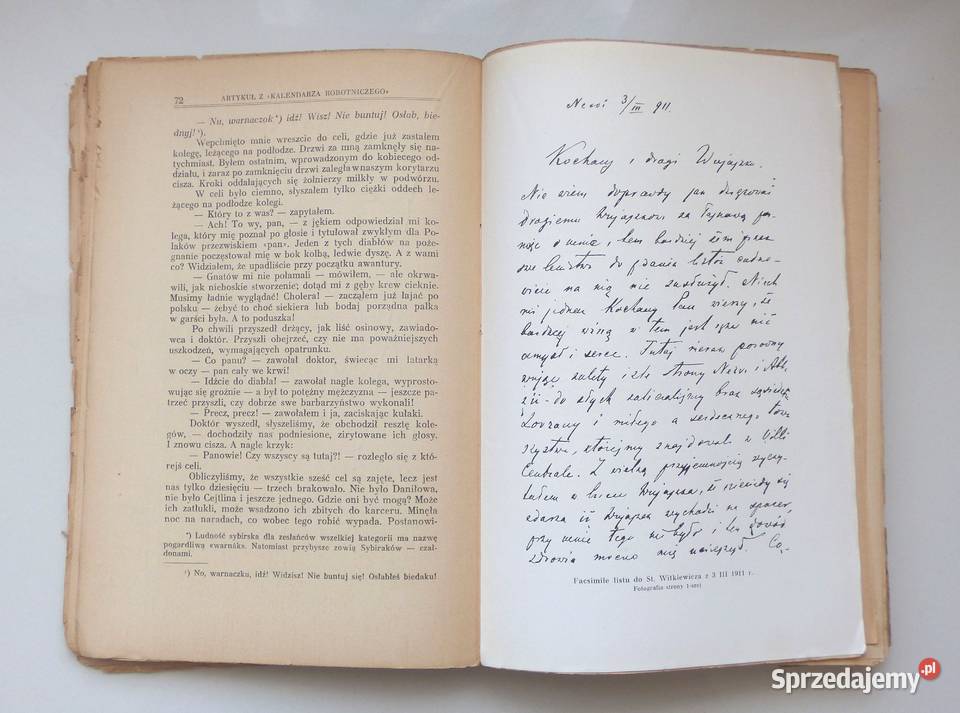 72 ARTYKUŁ Z »KALENDARZA ROBOTNICZEGO«
— Nu, warnaczok*) idź! Wisz! Nie buntuj! Osłab, bie-
dnyj!¹).
Wepchnięto mnie wreszcie do celi, gdzie już zastałem
kolegę, leżącego na podłodze. Drzwi za mną zamknęły się na-
tychmiast. Byłem ostatnim, wprowadzonym do kobiecego od-
działu, i zaraz po zamknięciu drzwi zaległa w naszym korytarzu
cisza. Kroki oddalających się żołnierzy milkły w podwórzu.
W celi było ciemno, słyszałem tylko ciężki oddech le-
żącego na podłodze kolegi.
— Który to z was? — zapytałem.
— Ach! To wy, pan, — z jękiem odpowiedział mi ko-
lega, który mię poznał po głosie i tytułował zwykłym dla Po-
laków przezwiskiem »pan«. Jeden z tych diabłów na poże-
gnanie poczęstował mię w bok kolbą, ledwie dyszę. A z wami
co? Widziałem, że upadliście przy początku awantury.
— Gnatów mi nie połamali — mówiłem, — ale okrwa-
wili, jak nieboskie stworzenie; dotąd mi z gęby krew cieknie.
Musimy ładnie wyglądać! Cholera! — zacząłem już łajać po
polsku — żebyż to choć siekiera lub bodaj porządna pałka
w garści była. A to poduszka!
Po chwili przyszedł drżący, jak liść osinowy, zawiado-
wca i doktór. Przyszli obejrzeć, czy nie ma poważniejszych
uszkodzeń, wymagających opatrunku.
— Co panu? — zawołał doktor, świecąc mi latarką
w oczy — pan cały we krwi!
— Idźcie do diabła! — zawołał nagle kolega, wyprosto-
wując się groźnie — a był to potężny mężczyzna — jeszcze pa-
trzeć przyszli, czy dobrze swe barbarzyństwo wykonali!
— Precz, precz! — zawołałem i ja, zaciskając kułaki.
Doktór wyszedł, słyszeliśmy, że obchodził resztę kole-
gów, — dochodziły nas podniesione, zirytowane ich głosy.
I znowu cisza. A nagle krzyk:
— Panowie! Czy wszyscy są tutaj?! — rozległo się z któ-
rejś celi.
Obliczyliśmy, że wszystkie sześć cel są zajęte, lecz jest
nas tylko dziesięciu — trzech brakowało. Nie było Daniłowa,
nie było Cejtlina i jeszcze jednego. Gdzie oni być mogą? Może
ich zatłukli, może wsadzono ich zbitych do karceru. Minęła
noc na naradach, co wobec tego robić wypada. Postanowi-
*) Ludność sybirska dla zesłańców wszelkiej kategorii ma nazwę
pogardliwą »warnák«. Natomiast przybysze zowią Sybiraków — czał-
donami.
¹) No, warnaczku, idź! Widzisz! Nie buntuj się! Osłabłeś biedaku!
Nervi 3/III 911.
Kochany i drogi Wujaszku.
Nie wiem doprawdy jak dziękować
Drogiemu Wujaszkowi za łaskawą pa-
mięć o mnie, tem bardziej żem przez
swe lenistwo do pisania listów
na nią nie zasłużył. Niech
mi jednak Kochany Pan wierzy, że
bardziej winą w tem jest ręka niż
umysł i serce. Tutaj nieraz porówny
wując zalety i złe strony Nervi i Abb-
zii - do złych zaliczaliśmy brak
Lovrany i miłego a serdecznego towa
rzystwa, któreśmy znajdowali w Villi
Centrale. Z wielką przyjemnością wyczy-
tałem w liście Wujaszka, że niekiedy się
zdarza iż Wujaszek wychodzi na spacer,
przy mnie tego nie było i ten dowód
zdrowia mocno mię ucieszył. Co,
Facsimile listu do St. Witkiewicza z 3 III 1911 r.
Fotografia strony 1-szej
Sprzedajemy.pl